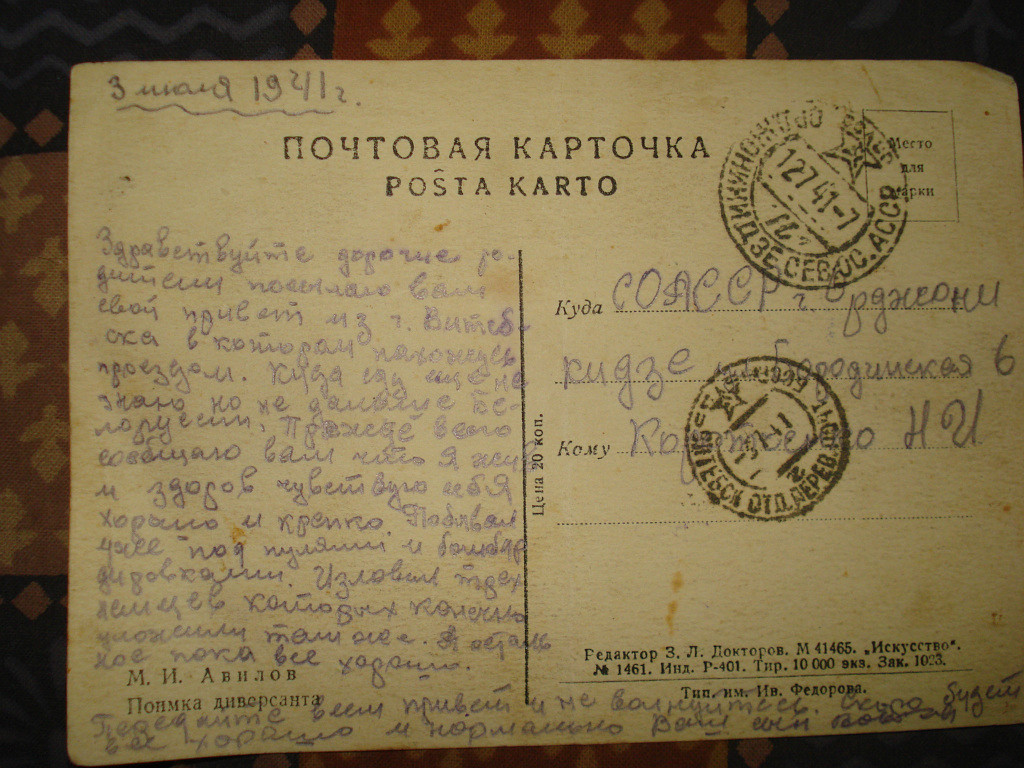 3 июля 1941 г.
ПОЧТОВАЯ КАРТОЧКА
POŜTA KARTO
Место
для
марки
ОРДЖОНИКИДЗЕ СЕВ.ОС.АССР
12 7 41-7
Здравствуйте дорогие ро-
дители посылаю вам
свой привет из г. Витеб-
ска в котором нахожусь
проездом. Куда еду еще не
знаю но не дальше Бе-
лоруссии. Прежде всего
сообщаю вам что я жив
и здоров чувствую себя
хорошо и крепко. Побывал
уже под пулями и бомбар
дировками. Изловили трех
немцев которых конечно
уложили там же. А осталь
ное пока все хорошо.
Передайте всем привет и не волнуйтесь. Скоро будет
все хорошо и нормально Ваш сын
Куда СОАССР г. Орджони
кидзе Бородинская 6
Кому Н И
ВИТЕБСК ОТД. ПЕРЕВ. ПОЧТЫ
Цена 20 коп.
М. И. Авилов
Поимка диверсанта
Редактор З. Л. Докторов. М 41465. „Искусство“.
№ 1461. Инд. Р-401. Тир. 10 000 экз. Зак. 1023.
Тип. им. Ив. Федорова.